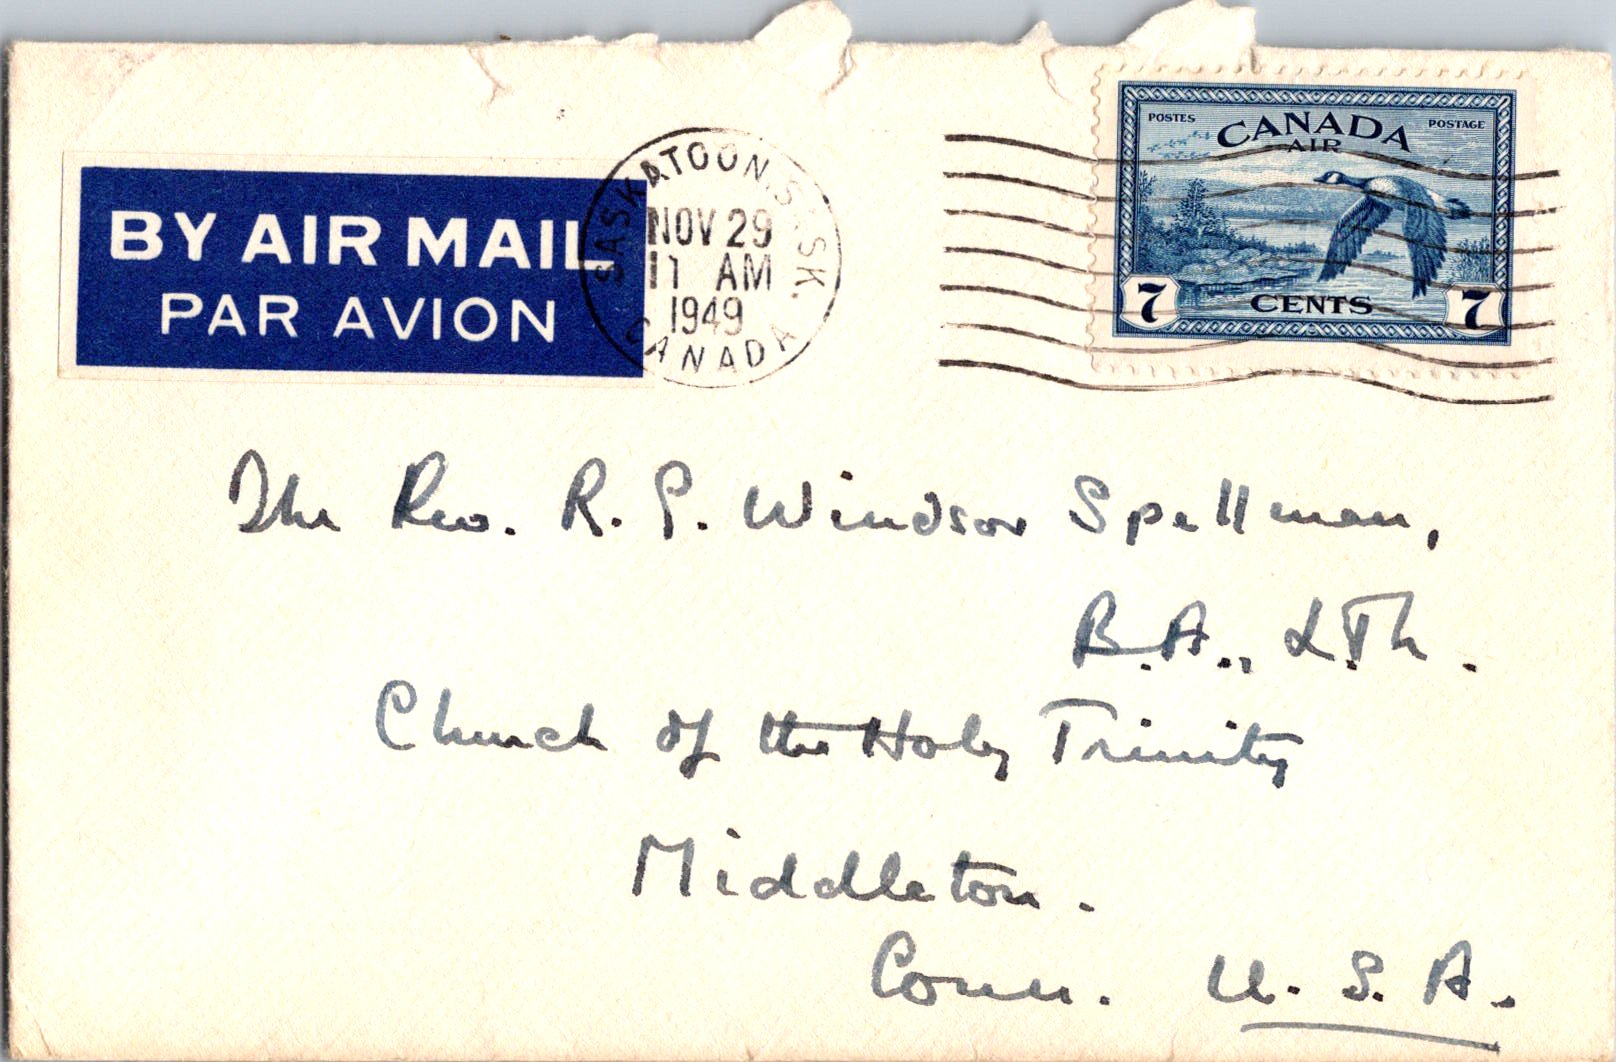 BY AIR MAIL
PAR AVION
SASKATOON, SASK.
NOV 29
11 AM
1949
CANADA
POSTES
CANADA
POSTAGE
AIR
7
CENTS
7
The Rev. R. P. Windsor Spellman,
B.A., L.Th.
Church of the Holy Trinity
Middleton.
Conn. U.S.A.